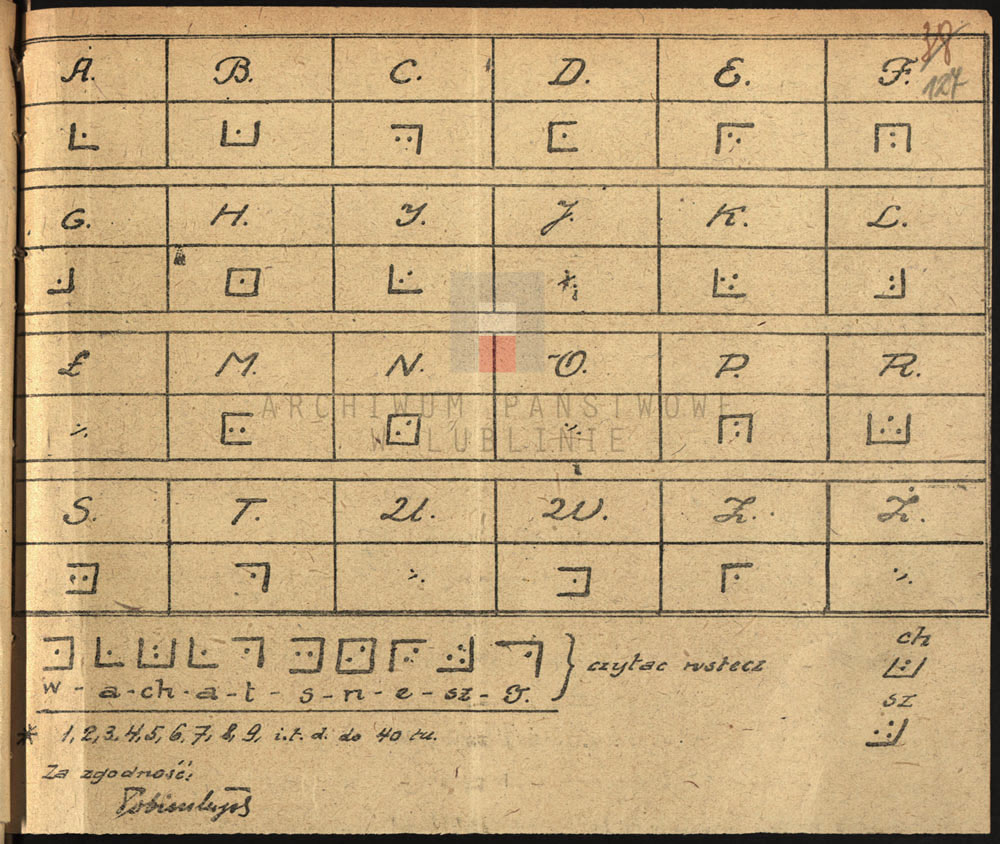 38
127
A. B. C. D. E. F.
G. H. Y. J. K. L.
Ł M. N. O. P. R.
ARCHIWUM PAŃSTWOWE
W LUBLINIE
S. T. U. W. Z. Ż.
ch
czytac wstecz
w - a - ch - a - t - s - n - e - sz - J.
sz
* 1, 2, 3, 4, 5, 6, 7, 8, 9, i.t.d. do 40 tu.
Za zgodność: